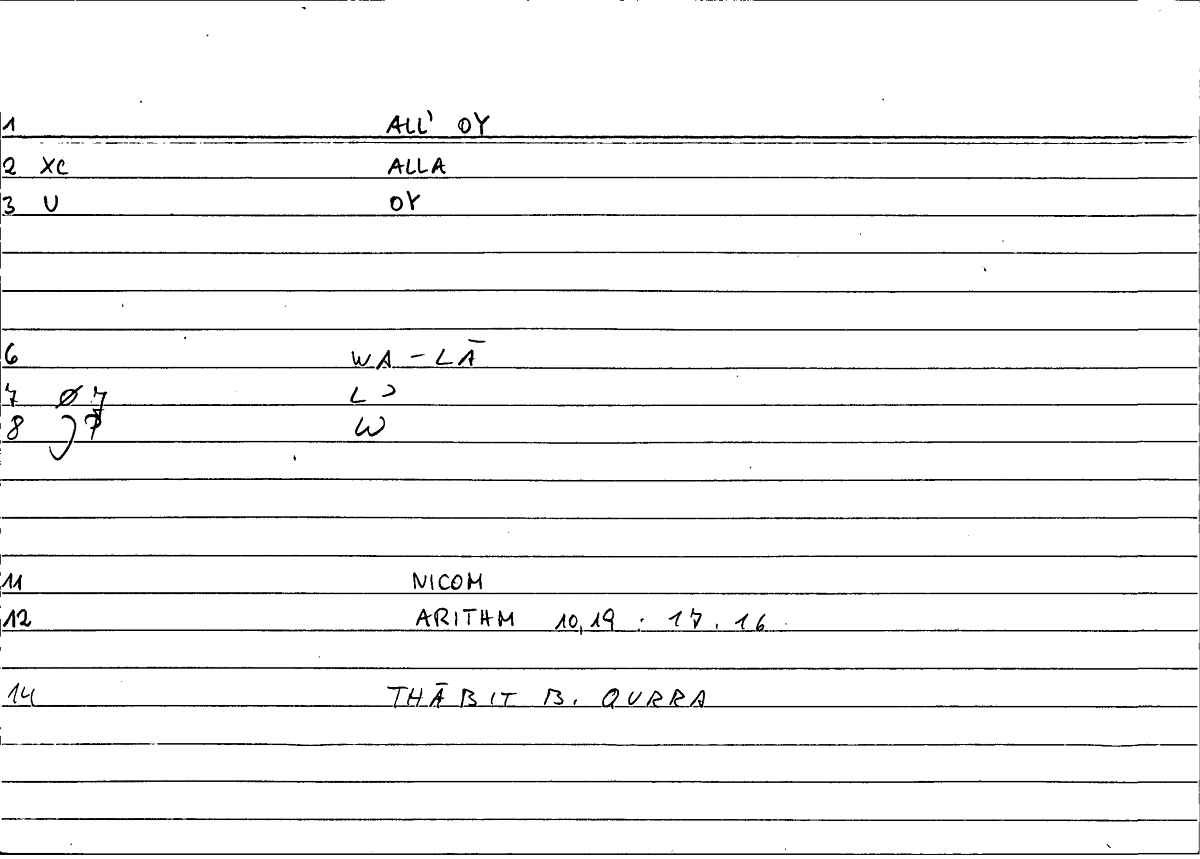 1 ALL' OY
2 XC ALLA
3 U OY
6 WA - LĀ
7 Ø7 L
8 7 W
11 NICOM
12 ARITHM 10,19 : 17.16
14 THĀBIT B. QURRA